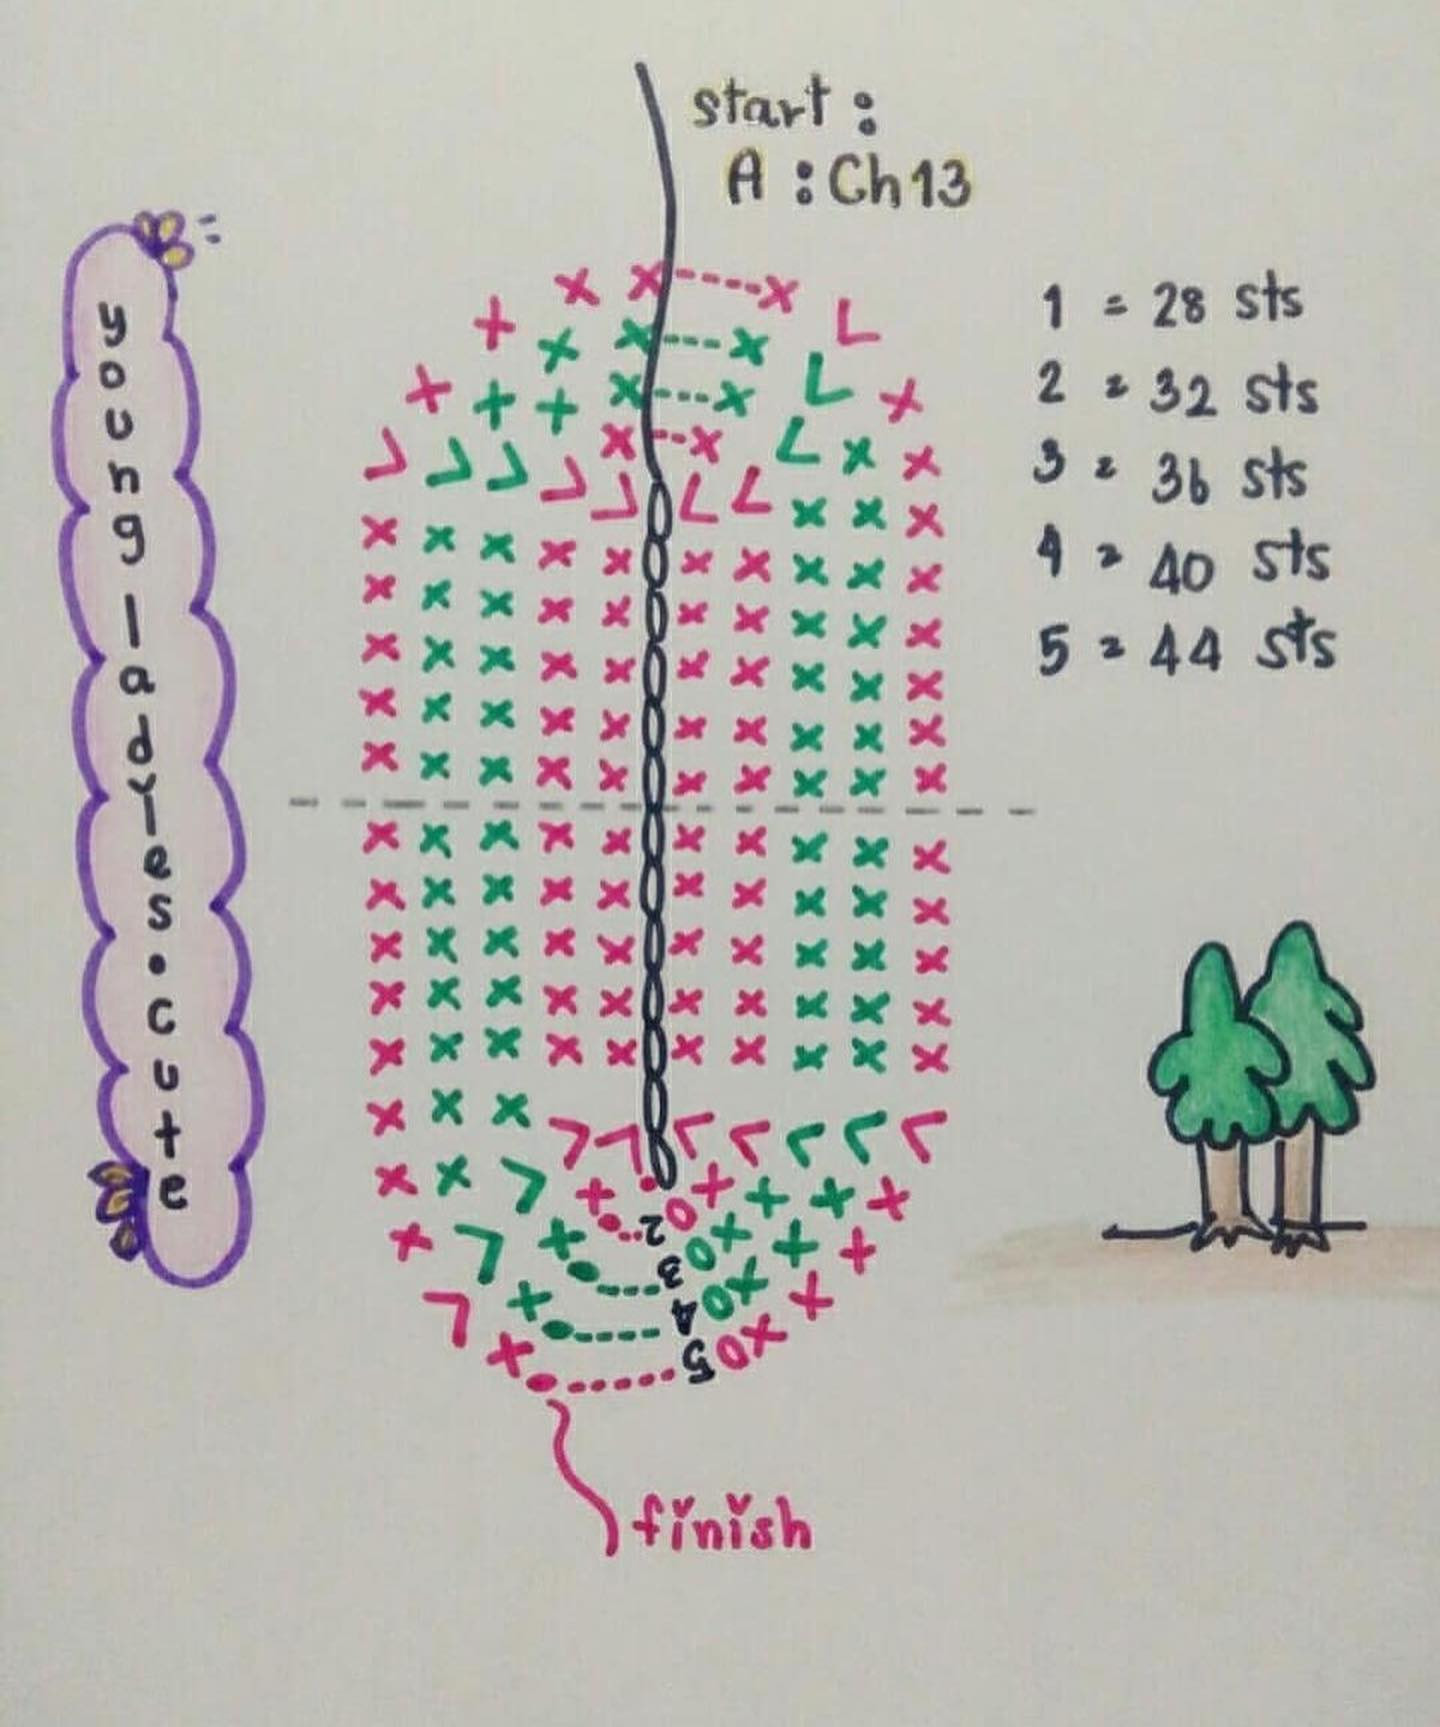 start :
A : Ch 13
1 = 28 sts
2 = 32 sts
3 = 36 sts
4 = 40 sts
5 = 44 sts
young ladyies.cute
2
3
4
5
finish